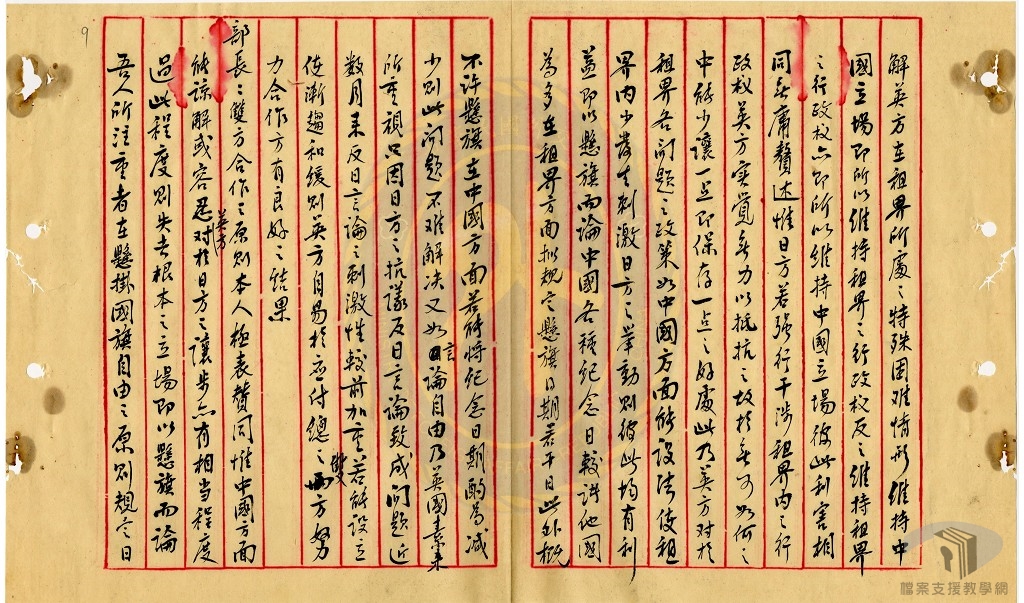 解英方在租界所處之特殊困难情形維持中
國立場即所以維持租界之行政权反之維持租界
之行政权亦即所以維持中國立場彼此利害相
同無庸贅述惟日方若强行干涉租界内之行
政权英方实覺無力以抵抗之故於無可如何之
中能少讓一点即保存一点之好處此乃英方对於
租界各问題之政策如中國方面能设法使租
界内少發生刺激日方之举動则彼此均有利
益即以懸旗而論中國各種纪念日較諸他國
為多在租界方面拟规定懸旗日期若干日此外概
不许懸旗在中國方面若能将纪念日期酌為减
少则此问題不难解决又如言論自由乃英國素来
所重視只因日方之抗議反日言论致成问題近
数月来反日言論之刺激性較前加重若能设法
使漸趨和緩则英方自易於应付總之雙方努
力合作方有良好之结果
部長：雙方合作之原则本人極表贊同惟中國方面
能諒解或容忍英方对於日方之讓步亦有相当程度
過此程度则失去根本之立場即以懸旗而論
吾人所注重者在懸掛國旗自由之原则规定日
9
檔案支援教學網